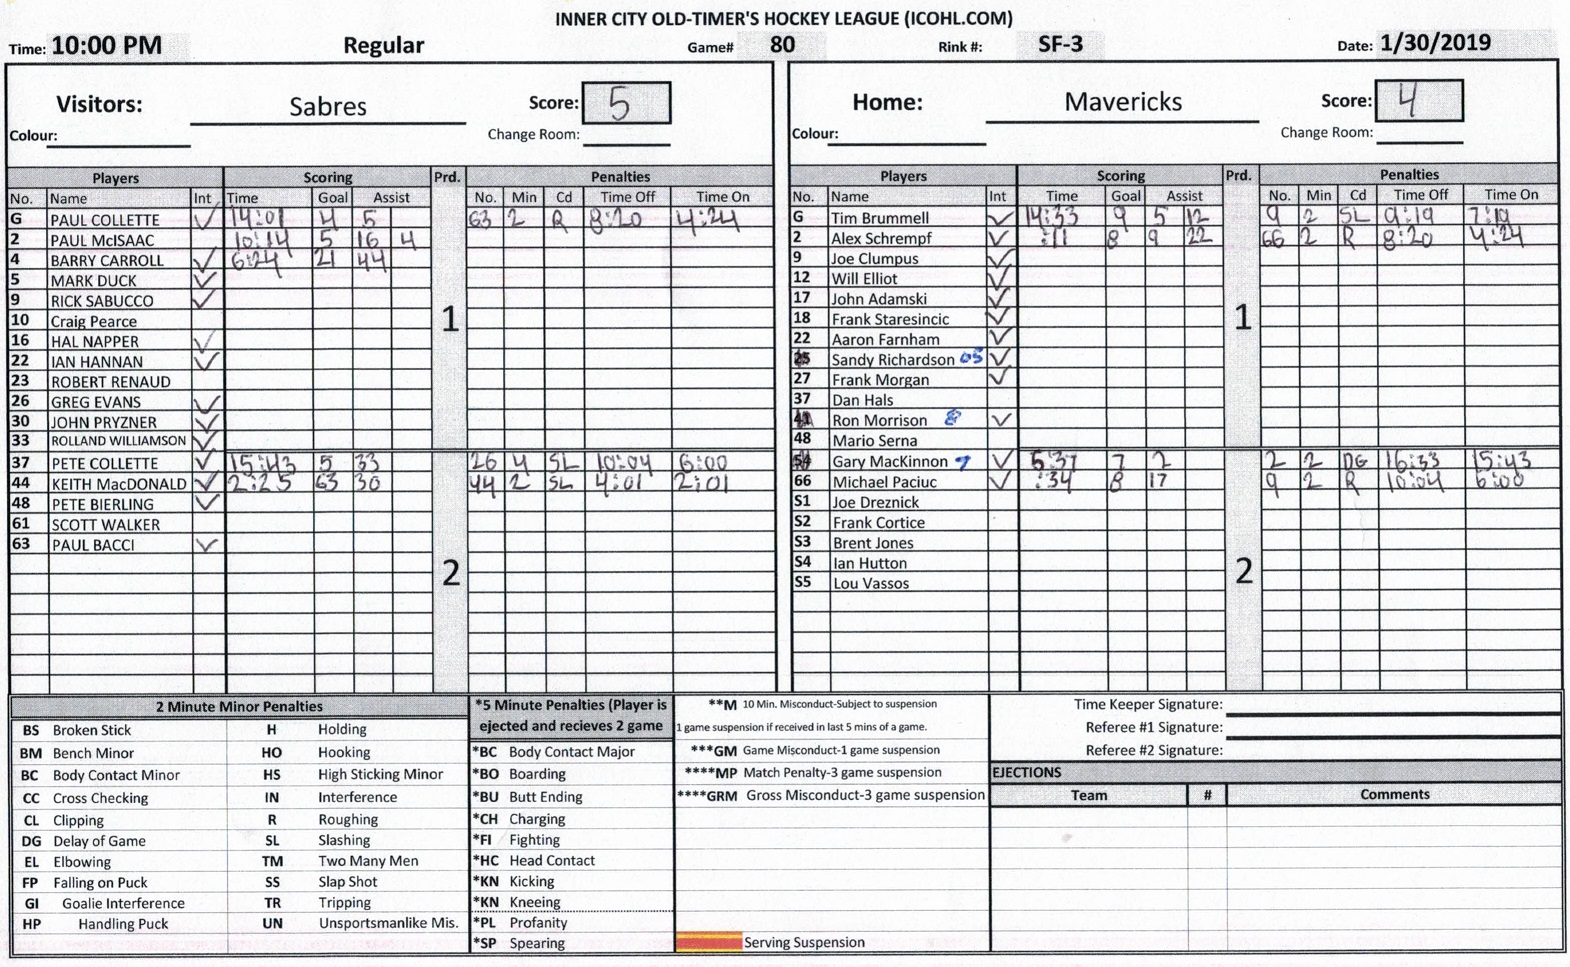 INNER CITY OLD-TIMER'S HOCKEY LEAGUE (ICOHL.COM)
Time: 10:00 PM Regular Game# 80 Rink #: SF-3 Date: 1/30/2019
Visitors: Sabres Score: 5
Colour: Change Room:
Players Scoring Prd. Penalties
No. Name Int Time Goal Assist No. Min Cd Time Off Time On
G PAUL COLLETTE ✓ 14:01 4 5 63 2 R 8:20 4:24
2 PAUL McISAAC 10:14 5 16 4
4 BARRY CARROLL ✓ 6:24 21 44
5 MARK DUCK ✓
9 RICK SABUCCO ✓
10 Craig Pearce
16 HAL NAPPER ✓
22 IAN HANNAN ✓
23 ROBERT RENAUD
26 GREG EVANS ✓
30 JOHN PRYZNER ✓
33 ROLLAND WILLIAMSON ✓
1
37 PETE COLLETTE ✓ 15:43 5 33 26 4 SL 10:04 6:00
44 KEITH MacDONALD ✓ 2:25 63 30 44 2 SL 4:01 2:01
48 PETE BIERLING ✓
61 SCOTT WALKER
63 PAUL BACCI ✓
2
Home: Mavericks Score: 4
Colour: Change Room:
Players Scoring Prd. Penalties
No. Name Int Time Goal Assist No. Min Cd Time Off Time On
G Tim Brummell ✓ 14:33 9 5 12 9 2 SL 9:19 7:19
2 Alex Schrempf ✓ :11 8 9 22 66 2 R 8:20 4:24
9 Joe Clumpus ✓
12 Will Elliot ✓
17 John Adamski ✓
18 Frank Staresincic ✓
22 Aaron Farnham ✓
Sandy Richardson 05 ✓
27 Frank Morgan ✓
37 Dan Hals
Ron Morrison 8 ✓
48 Mario Serna
1
Gary MacKinnon 7 ✓ 5:37 7 2 2 2 DG 16:33 15:43
66 Michael Paciuc ✓ :34 8 17 9 2 R 10:04 6:00
S1 Joe Dreznick
S2 Frank Cortice
S3 Brent Jones
S4 Ian Hutton
S5 Lou Vassos
2
2 Minute Minor Penalties
BS Broken Stick H Holding
BM Bench Minor HO Hooking
BC Body Contact Minor HS High Sticking Minor
CC Cross Checking IN Interference
CL Clipping R Roughing
DG Delay of Game SL Slashing
EL Elbowing TM Two Many Men
FP Falling on Puck SS Slap Shot
GI Goalie Interference TR Tripping
HP Handling Puck UN Unsportsmanlike Mis.
*5 Minute Penalties (Player is
ejected and recieves 2 game
*BC Body Contact Major
*BO Boarding
*BU Butt Ending
*CH Charging
*FI Fighting
*HC Head Contact
*KN Kicking
*KN Kneeing
*PL Profanity
*SP Spearing
**M 10 Min. Misconduct-Subject to suspension
1 game suspension if received in last 5 mins of a game.
***GM Game Misconduct-1 game suspension
****MP Match Penalty-3 game suspension
****GRM Gross Misconduct-3 game suspension
Serving Suspension
Time Keeper Signature:
Referee #1 Signature:
Referee #2 Signature:
EJECTIONS
Team # Comments